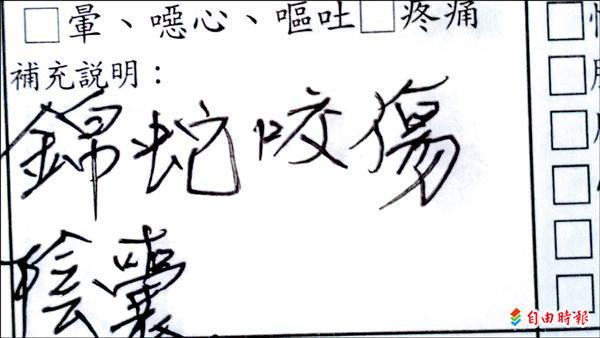 □暈、噁心、嘔吐□疼痛
補充説明：
錦蛇咬傷
陰囊
自由時報